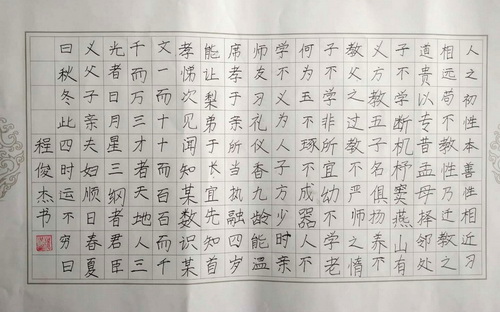 人之初性本善性相近习
相远苟不教性乃迁教之
道贵以专昔孟母择邻处
子不学断机杼窦燕山有
义方教五子名俱扬养不
教父之过教不严师之惰
子不学非所宜幼不学老
何为玉不琢不成器人不
学不义为人子方少时亲
师友习礼仪香九龄能温
席孝于亲所当执融四岁
能让梨弟于长宜先知首
孝悌次见闻知某数识某
文一而十十而百百而千
千而万三才者天地人三
光者日月星三纲者君臣
义父子亲夫妇顺曰春夏
曰秋冬此四时运不穷曰
程俊杰书